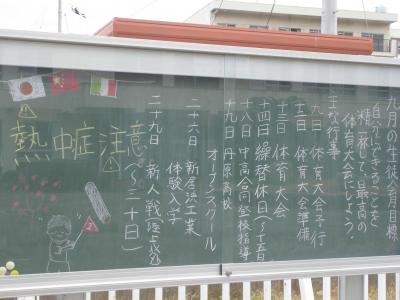 九月の生徒会月目標
自分にできることを
精一杯して、最高の
体育大会にしよう。
主な行事
九日 体育大会予行
十二日 体育大会準備
十三日 体育大会
十四日 繰替休日(〜十五日)
十八日 中高合同登校指導
十九日 丹原高校
オープンスクール
二十六日 新居浜工業
体験入学
二十九日 新人戦陸上
(〜三十日)
熱中症注意